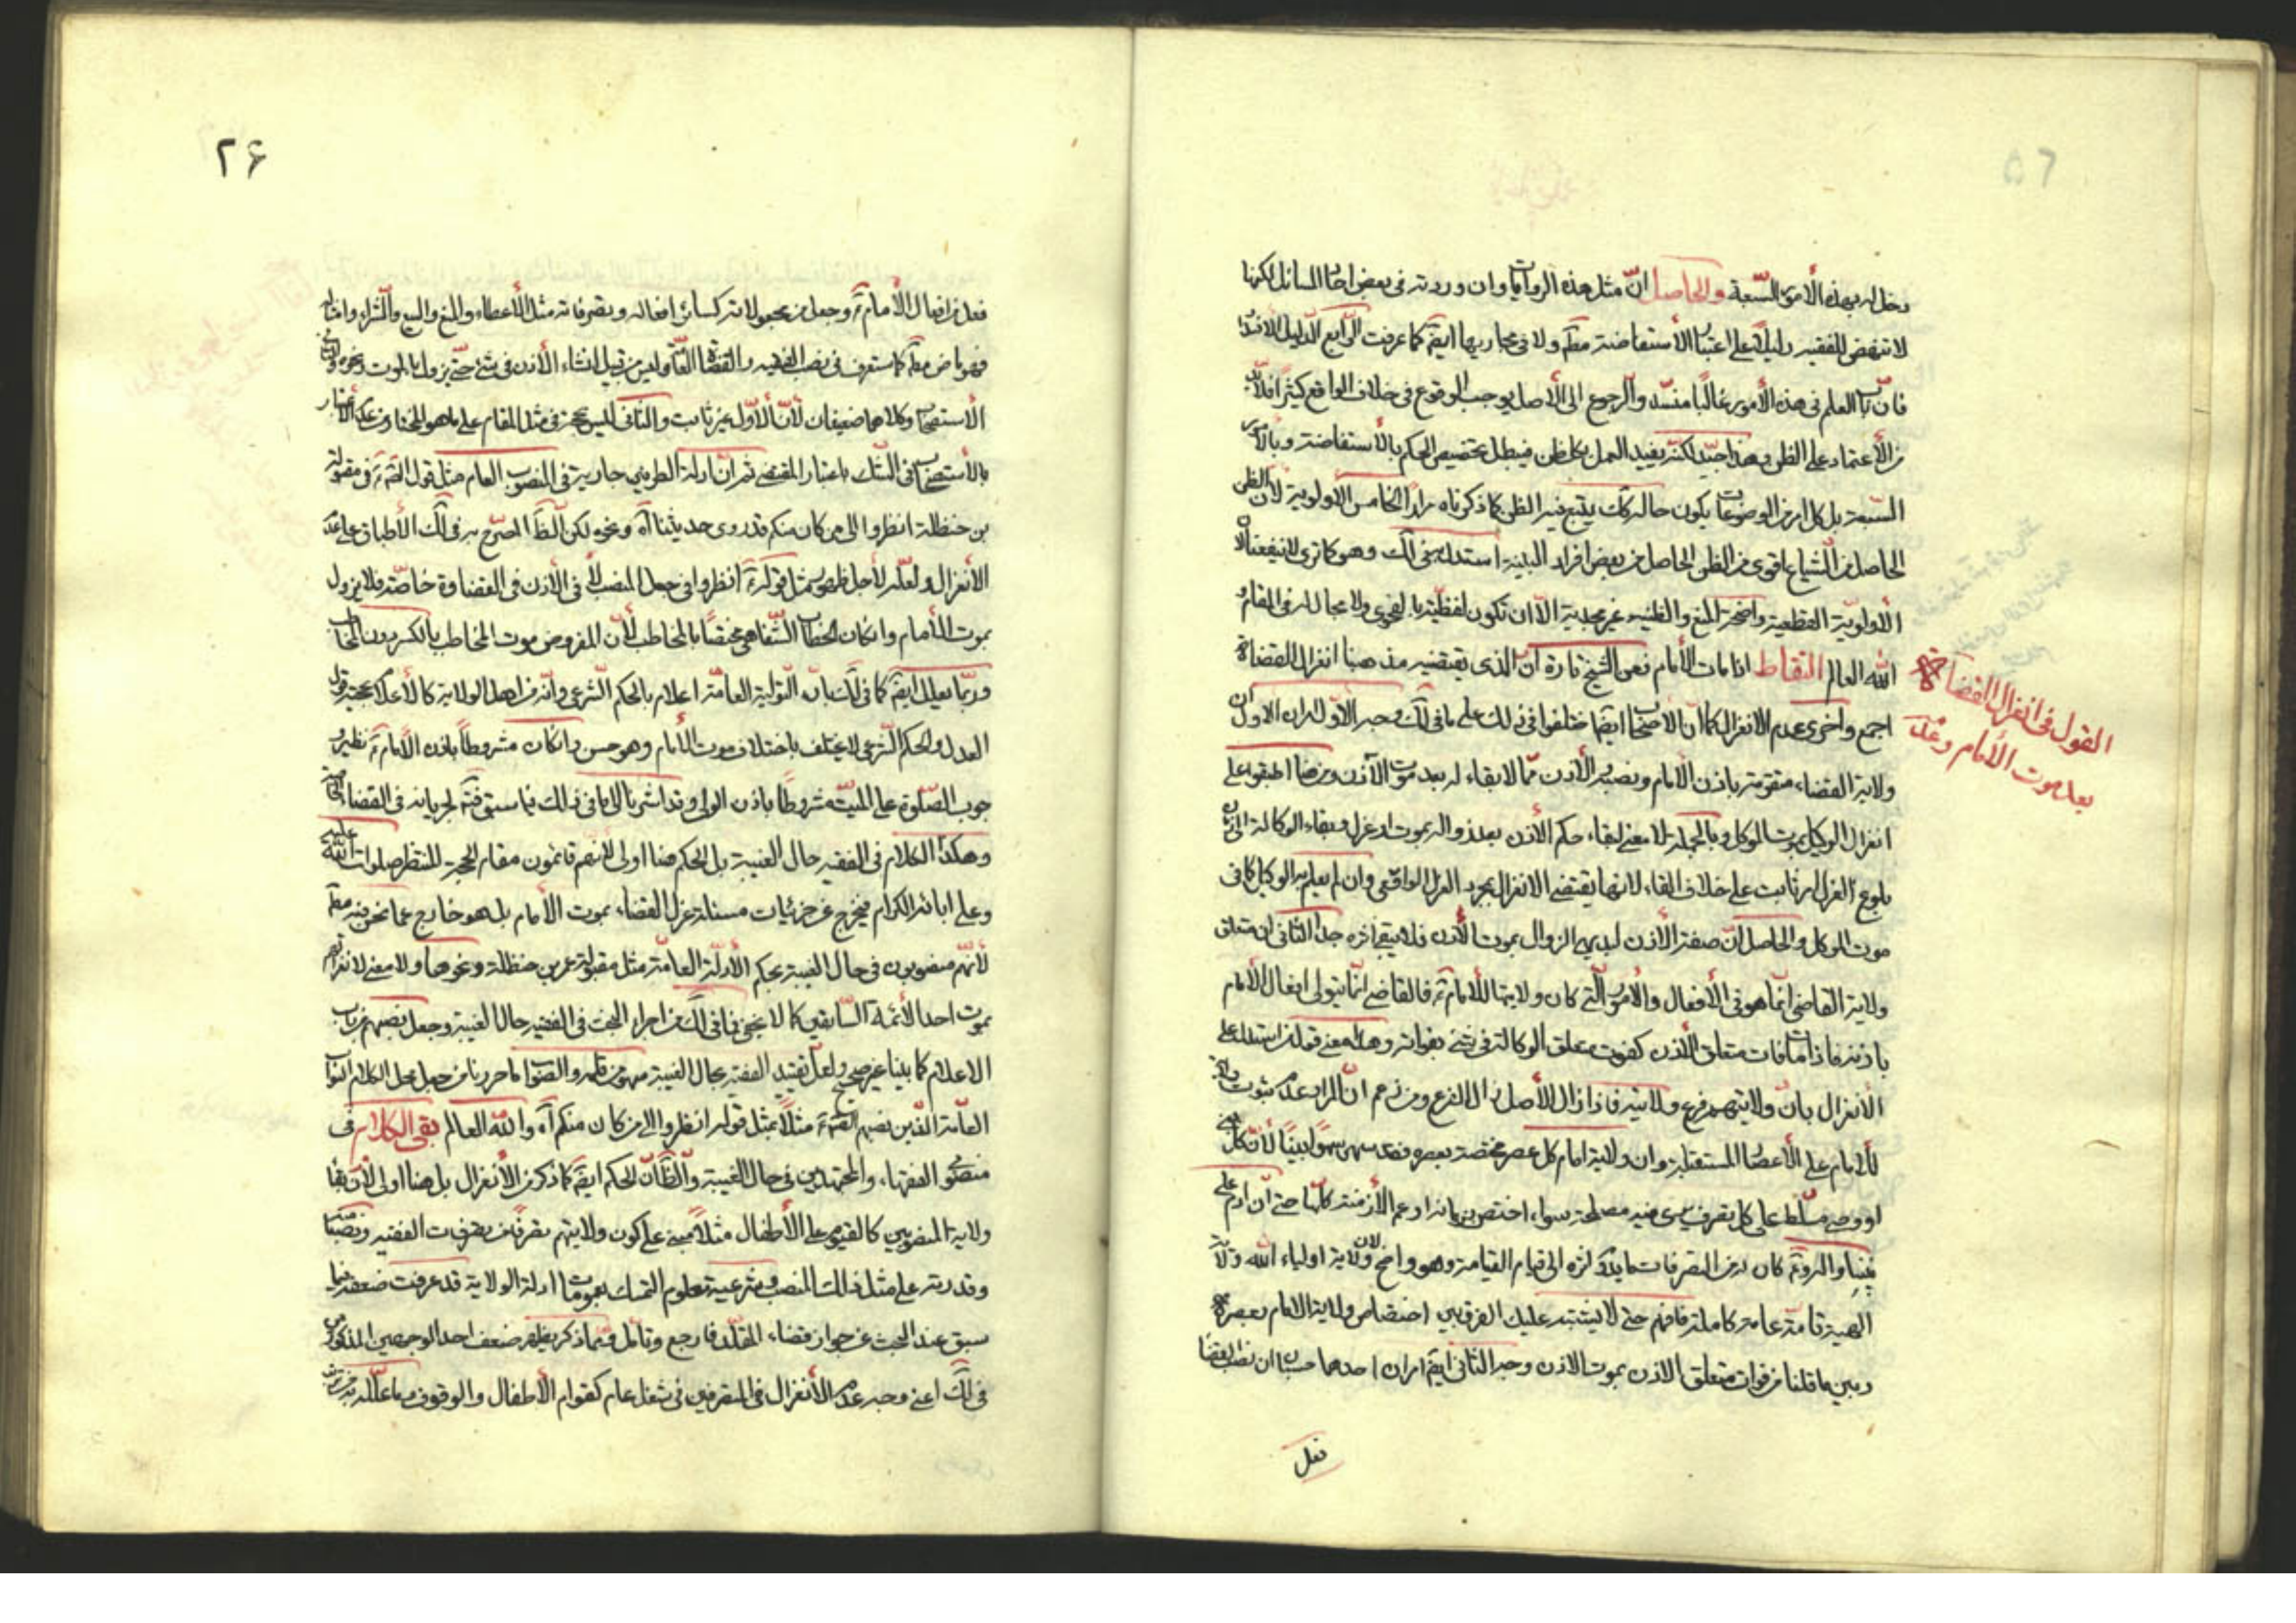 دخل له بهذه الأمور السبعة والحاصل انّ مثل هذه الروايات وان وردت فى بعض احاد المسائل لكنها
لا تنهض للفقيه دليلا على اعتبار الأستفاضة مطَ ولا فى مجاريها ايضَ كما عرفت الرّابع الدليل الانسداد
فان باب العلم فى هذه الأمور غالبًا منسدّ والرجوع الى الأصل يوجب الوقوع فى خلاف الواقع كثيرًا فلا بدّ
من الأعتماد على الظن وهذا جيّد لكنّه يفيد العمل بكل ظن فيبطل تخصيص الحكم بالأستفاضة وبالأمور
السّبعة بل كل امر من الموضوعات يكون حاله كك يتبع فيه الظن كما ذكرناه مرارًا الخامس الأولوية لأن الظن
الحاصل من الشياع اقوى من الظن الحاصل من بعض افراد البينة استدل به فى لك وهو كما ترى لا ينفعنا لان
الأولويّة القطعية واضحة المنع والظنيه غير مجدية الّا ان تكون لفظيّة بالفحوى ولا مجال له فى المقام و
الله العالم التقاط اذا مات الأمام فعن الشيخ تارة انّ الذى يقتضيه مذهبنا انعزال القضاة
اجمع واخرى عدم الانعزال كما انّ الأصحاب ايضًا اختلفوا فى ذلك على ما فى لك وجه الأوّل امران الاول ان
ولاية القضاء متقومة باذن الامام ونصبه والأذن ممّا لا بقاء له بعد موت الآذن ومن هنا اطبقوا على
انعزال الوكيل بموت الموكل وبالجملة لا معنى لبقاء حكم الأذن بعد زواله بموت او عزل وبقاء الوكالة الى زمان
بلوغ العزل امر ثابت على خلاف القاعدة لانها يقتضى الانعزال بمجرد العزل الواقعى وان لم يعلم به الوكيل كما فى
موت الموكل والحاصل انّ صفة الأذن لبديهى الزوال بموت الأذن فلا يبقى اثره جدا الثانى ان متعلق
ولاية القاضى انما هو فى الأفعال والأمور الّتى كان ولايتها للأمام ع فالقاضى انّما يتولى افعال الأمام
باذنه فاذا مات فات متعلق الأذن كفوت متعلق الوكالة فى شئ بفواته وهذا معنى قول من استدل على
الأنعزال بانّ ولايتهم فرع ولايته فاذا زال الأصل زال الفرع ومن زعم انّ المراد عدم ثبوت ولاية
للأمام على الأعصار المستقبلة وان ولاية امام كل عصر مختصة بعصره فقد سهى سهوًا بينًا لأن كل نبى
او وصى مسلّط على كل تصرف يرى فيه مصلحة سواء اختص بزمانه او عم الأزمنة كلّها حتى انّ ادم على
نبينا واله وعَ كان له من التصرفات ما يبقى اثره الى قيام القيامة وهو واضح لان ولاية اولياء الله ولاية
الهية تامة عامة كاملة فافهم حتى لا يشتبه عليك الفرق بين اختصاص ولاية الامام بعصره
وبين ما قلنا من فوات متعلق الاذن بموت الاذن وجه الثانى ايضَ امران احدهما حسبان ان نصب القضاة
فعل
القول فى انعزال القضاة
بعد موت الأمام وعدمه
۲۶
فعل من افعال الأمام ع وجعل من مجعولاته كسائر افعاله وتصرفاته مثل الأعطاء والمنع والبيع والشراء وامثاله
فهو ماض مطَ كما ستعرف فى نصب الفقيه والقضاة العامّ وليس من قبيل انشاء الأذن فى شئ حتى يزول بالموت ونحوه والثانى
الأستصحاب وكلاهما ضعيفان لأنّ الأوّل غير ثابت والثانى ليس بحجة فى مثل المقام على ما هو المختار من عدم الاعتبار
بالأستصحاب فى الشك باعتبار المقتضى ثم انّ ادلة الطرفين جارية فى المنصوب العام مثل قول الصّ ع فى مقبولة
بن حنظلة انظروا الى من كان منكم قد روى حديثنا آه ونحوه لكن الظَ المصرّح به فى لك الأطباق على عدم
الأنعزال ولعلّه لأجل ظهور مثل قوله ع انظروا فى جعل المنصب لا فى الأذن فى القضاوة خاصّة فلا يزول
بموت الأمام وانكان الخطاب الشّفاهى مختصًا بالمخاطب لأن المفروض موت المخاطب بالكسر دون المخاطب
وربّما يعلل ايضَ كما فى لك بانّ التولية العامّة اعلام بالحكم الشرعى وانّه من اهل الولاية كالأعلام بحجية قول
العدل والحكم الشرعى لا يختلف باختلاف موت الأمام وهو حسن وانكان مشروطًا باذن الأمام ع نظير و
جوب الصّلوة على الميّت مشروطًا باذن الولى وقد اشرنا الى ما فى ذلك فيما سبق فتنبّه لجريانه فى القضاة
وهكذا الكلام فى الفقيه حال الغيبة بل الحكم هنا اولى لأنّهم قائمون مقام الحجة المنتظر صلوات الله عليه
وعلى ابائه الكرام فيخرج عن جزئيات مسئلة عزل القضاء بموت الأمام بل هو خارج عما نحن فيه مطَ
لأنّهم منصوبون فى حال الغيبة بحكم الأدلّة العامّة مثل مقبولة عمر بن حنظلة ونحوها ولا معنى لانعزالهم
بموت احد الأئمة السّابقين كما لا يخفى فما فى لك من اجراء البحث فى الفقيه حال الغيبة وجعل نصبهم من باب
الاعلام كما بينا غير صحيح ولعل تقييد الفقيه بحال الغيبة سهو من قلمه والصّواب ما حررنا من جعل محل الكلام النوّاب
العامّة الذين نصبهم الصّ ع مثلًا بمثل قوله انظروا الى من كان منكم آه والله العالم بقى الكلام فى
منصوب الفقهاء والمجتهدين فى حال الغيبة والظَ انّ الحكم ايضَ كما ذكر من الأنعزال بل هنا اولى لأن بقاء
ولاية المنصوبين كالقيّم على الأطفال مثلًا مبنى على كون ولايتهم تصرفًا من تصرفات الفقيه ونصبًا منه
وقدرته على مثل ذلك المنصب شرعية معلوم التمسك بعمومات ادلة الولاية قد عرفت ضعفه فيما
سبق عند البحث عن جواز قضاء المقلّد فارجع وتامّل وبما ذكر يظهر ضعف احد الوجهين المذكورين
فى لك اعنى وجه عدم الأنعزال فى المتصرفين فى شغل عام كقوّام الأطفال والوقوف وما علّله به من